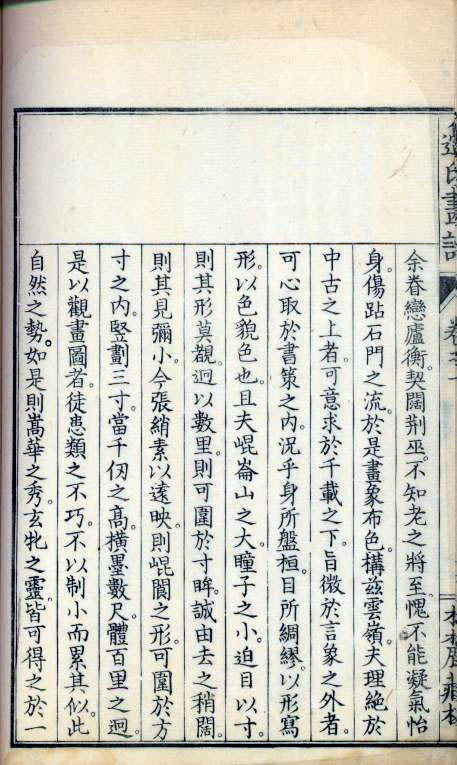 氏畫
卷之
余眷戀廬衡。契闊荊巫。不知老之將至。愧不能凝氣怡
身。傷跕石門之流。於是畫象布色。構茲雲嶺。夫理絕於
中古之上者。可意求於千載之下。旨微於言象之外者。
可心取於書策之內。況乎身所盤桓。目所綢繆。以形寫
形。以色貌色也。且夫崐崙山之大。瞳子之小。迫目以寸。
則其形莫覩。迥以數里。則可圍於寸眸。誠由去之稍闊。
則其見彌小。今張綃素以遠映。則崐閬之形。可圍於方
寸之內。竪劃三寸。當千仞之高。橫墨數尺。體百里之迥。
是以觀畫圖者。徒患類之不巧。不以制小而累其似。此
自然之勢。如是則嵩華之秀。玄牝之靈。皆可得之於一